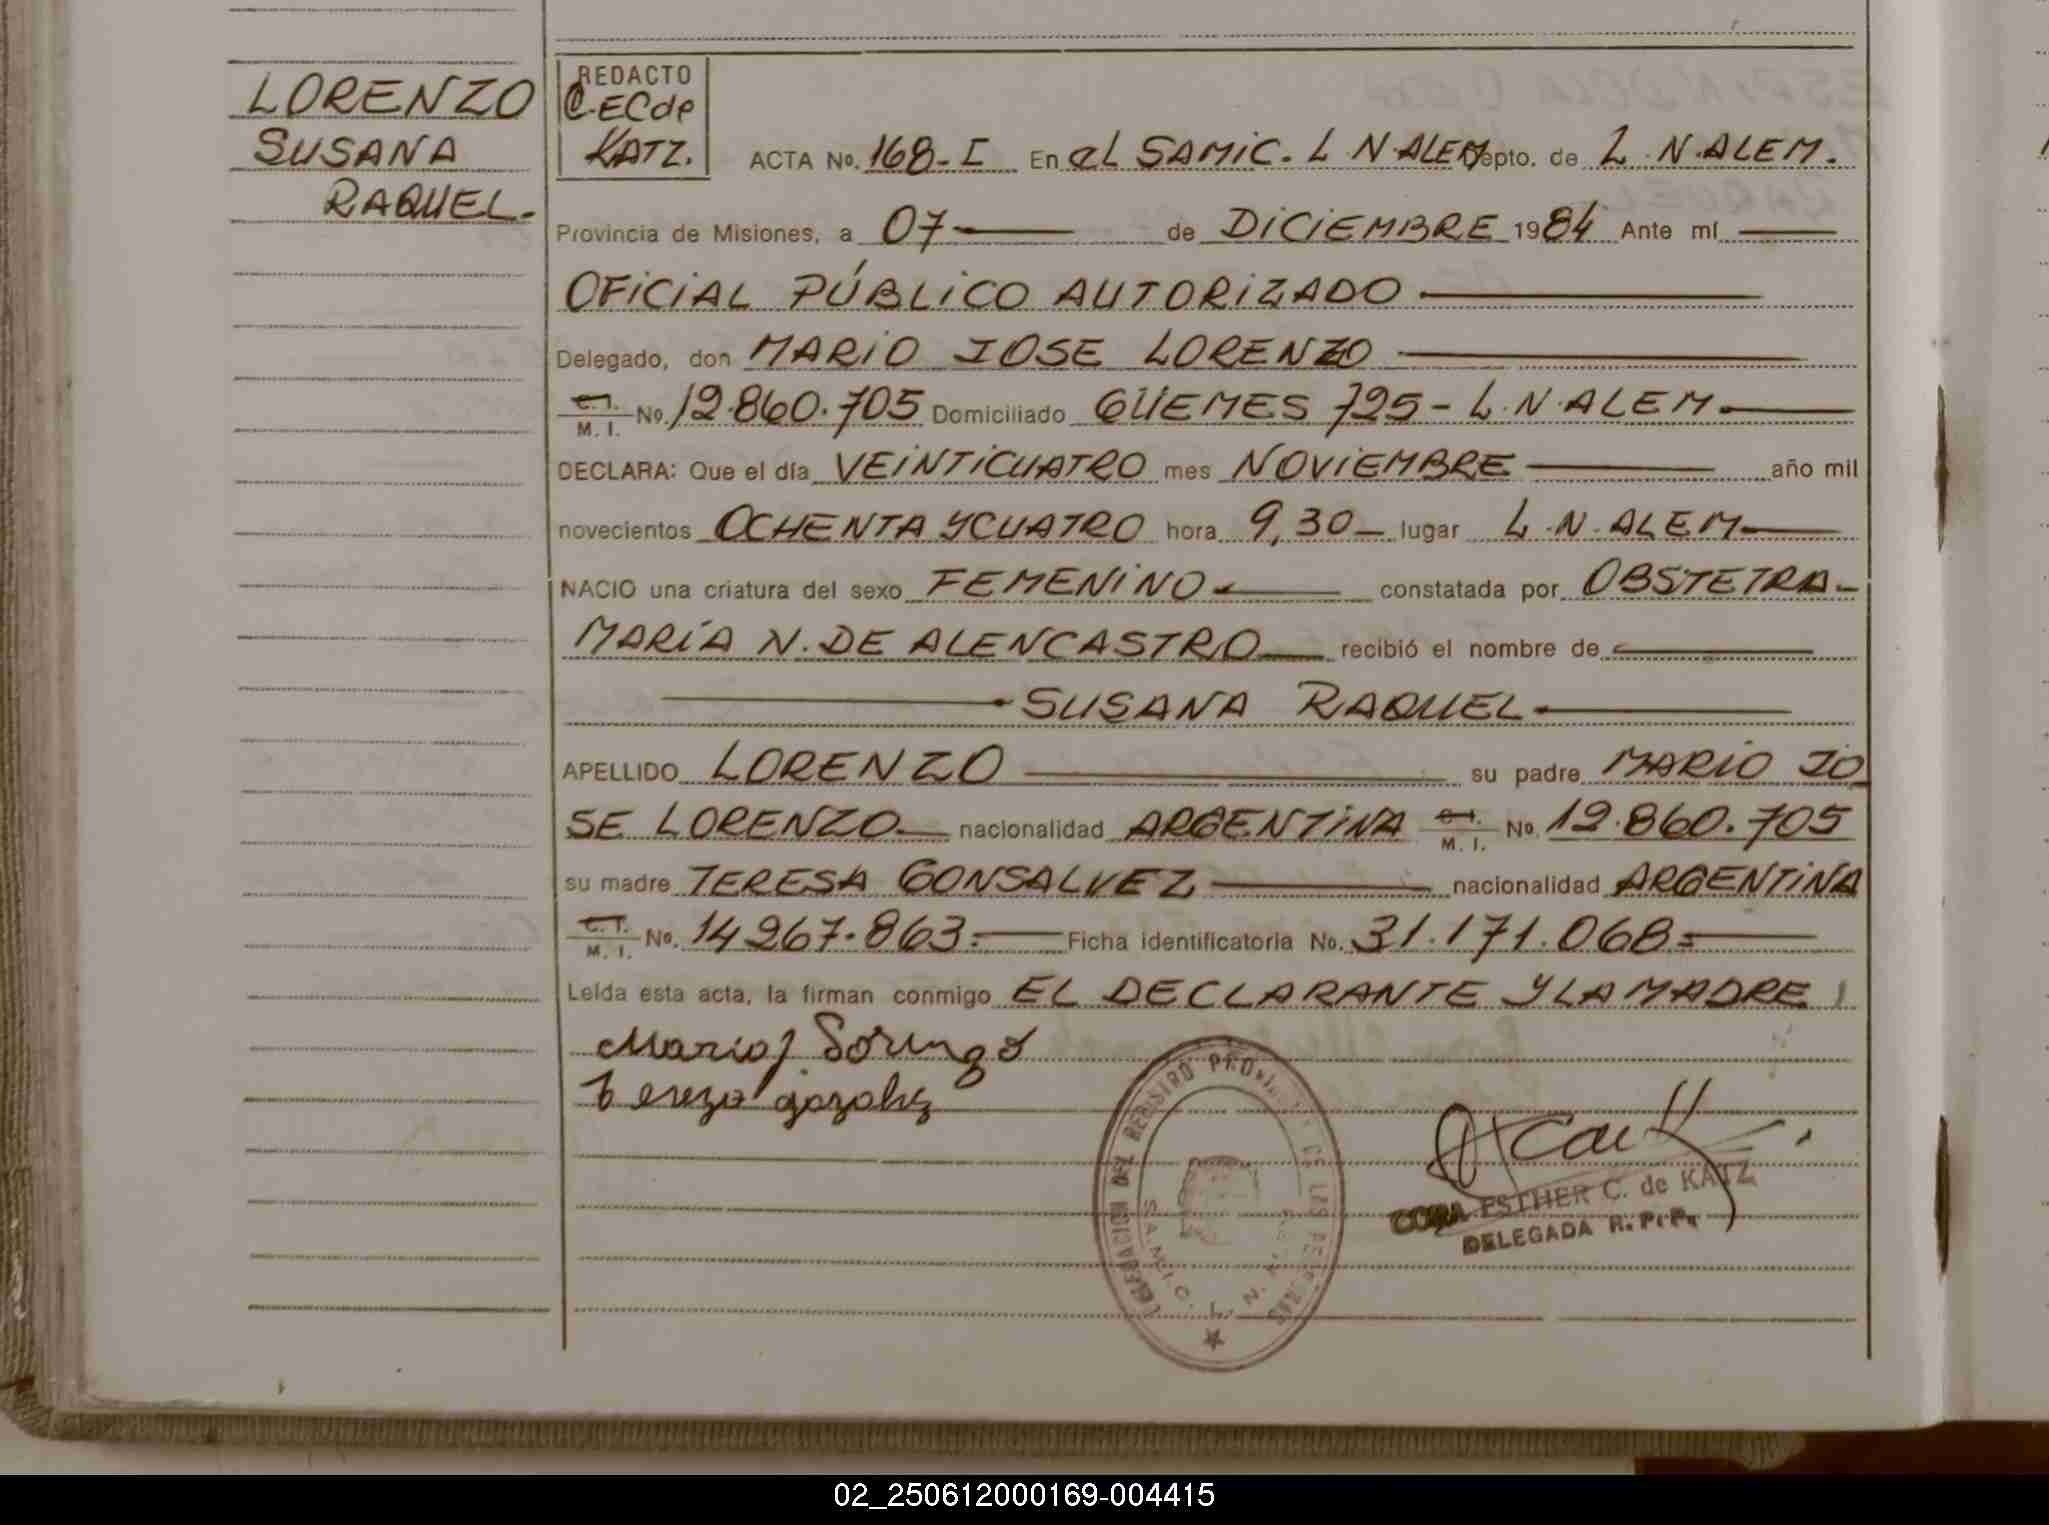 LORENZO
SUSANA
RAQUEL.-
REDACTO
C.ECde
KATZ.
ACTA No. 168-I En el SAMIC. L N. ALEM Depto. de L.N.ALEM.
Provincia de Misiones, a 07 de DICIEMBRE 1984 Ante mí
OFICIAL PÚBLICO AUTORIZADO
Delegado, don MARIO JOSE LORENZO
C. I. M. I. No. 12.860.705 Domiciliado GÜEMES 725 - L.N.ALEM
DECLARA: Que el día VEINTICUATRO mes NOVIEMBRE año mil
novecientos OCHENTA Y CUATRO hora 9,30 lugar L.N.ALEM
NACIO una criatura del sexo FEMENINO constatada por OBSTETRA-
MARÍA N. DE ALENCASTRO recibió el nombre de
SUSANA RAQUEL
APELLIDO LORENZO su padre MARIO JO
SE LORENZO nacionalidad ARGENTINA C. I. M. I. No. 12.860.705
su madre TERESA GONSALVEZ nacionalidad ARGENTINA
C. I. M. I. No. 14267.863.- Ficha identificatoria No. 31.171.068=
Leída esta acta, la firman conmigo EL DECLARANTE Y LA MADRE
Mario J Lorenzo
DELEGACION DEL REGISTRO PROVINCIAL DE LAS PERSONAS
S.A.M.I.C. L. N. ALEM
CORA ESTHER C. de KATZ
DELEGADA R. P. P.
02_250612000169-004415